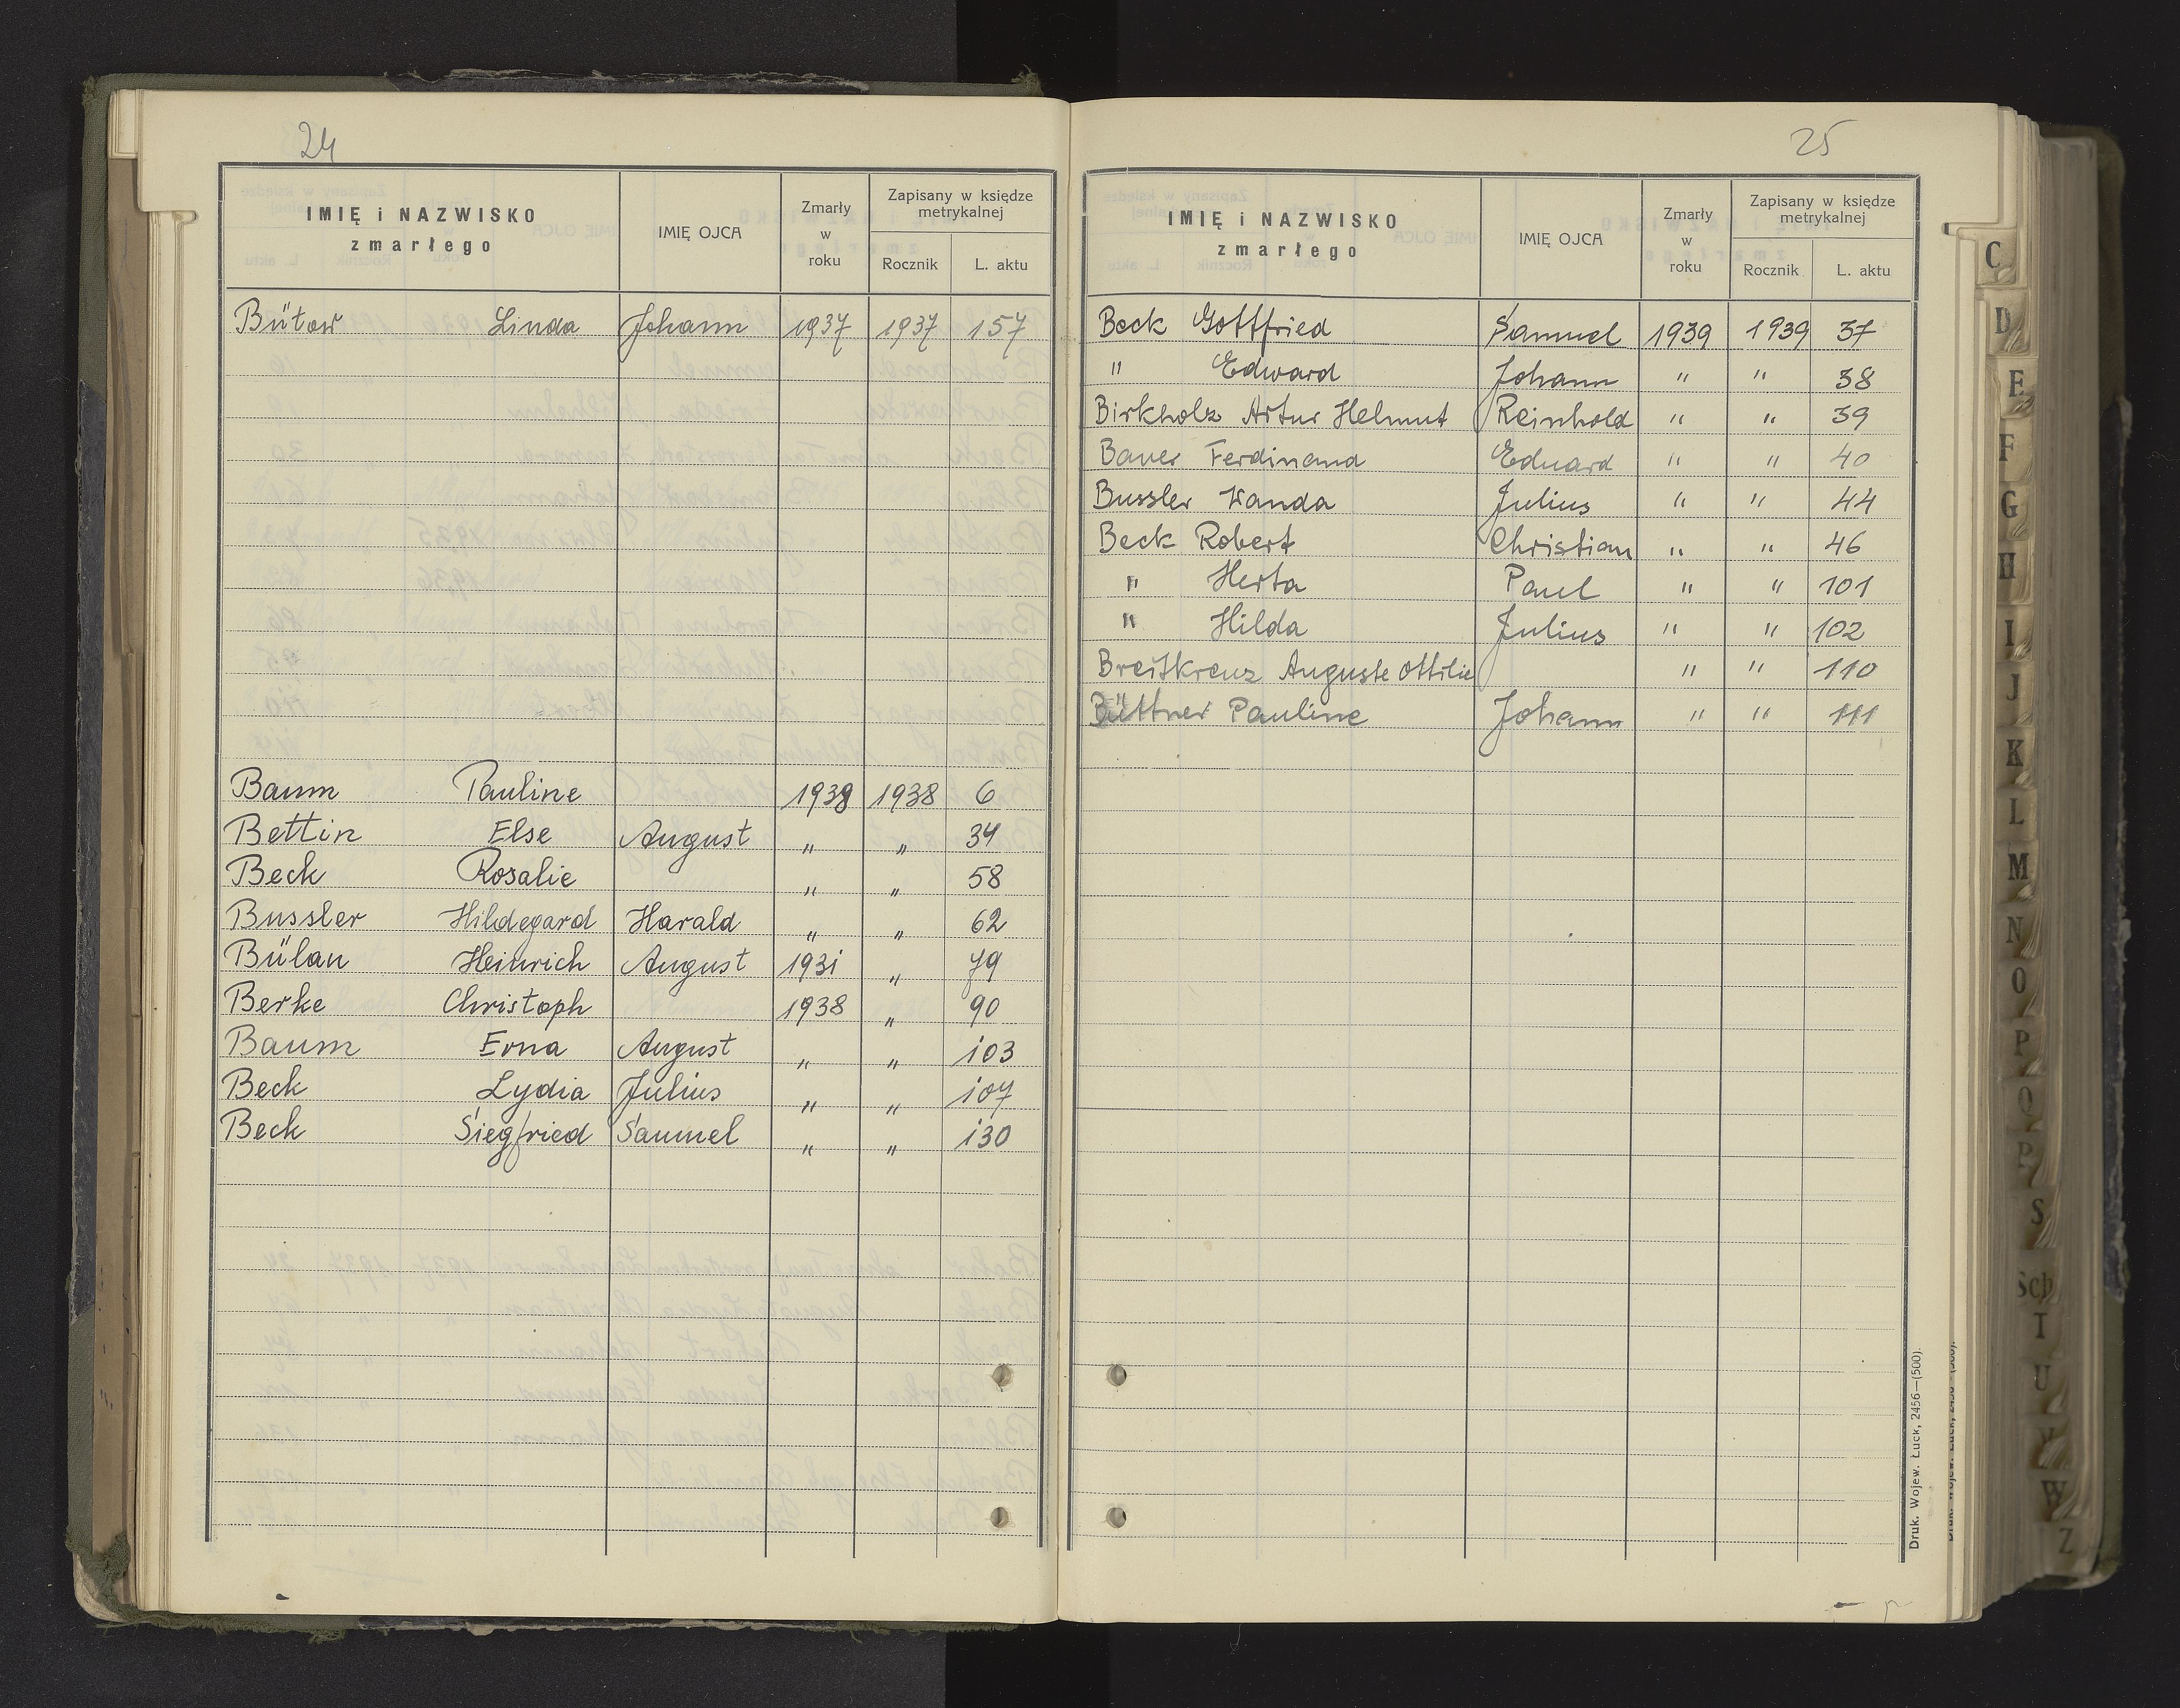 24
IMIĘ i NAZWISKO zmarłego IMIĘ OJCA Zmarły w roku Zapisany w księdze metrykalnej Rocznik L. aktu
Bütow Linda Johann 1937 1937 157
Baum Pauline 1938 1938 6
Bettin Else August " " 34
Beck Rosalie " " 58
Bussler Hildegard Harald " " 62
Bülau Heinrich August 1931 " 79
Berke Christoph 1938 " 90
Baum Erna August " " 103
Beck Lydia Julius " " 107
Beck Siegfried Samuel " " 130
25
IMIĘ i NAZWISKO zmarłego IMIĘ OJCA Zmarły w roku Zapisany w księdze metrykalnej Rocznik L. aktu
Beck Gottfried Samuel 1939 1939 37
" Edward Johann " " 38
Birkholz Artur Helmut Reinhold " " 39
Bauer Ferdinand Eduard " " 40
Bussler Wanda Julius " " 44
Beck Robert Christian " " 46
" Herta Paul " " 101
" Hilda Julius " " 102
Breitkreuz Auguste Ottilie " " 110
Büttner Pauline Johann " " 111
Druk. Wojew. Łuck, 2456—(500).
C
D
E
F
G
H
I
J
K
L
M
N
O
P
Q
S
Sch
T
U
W
Z